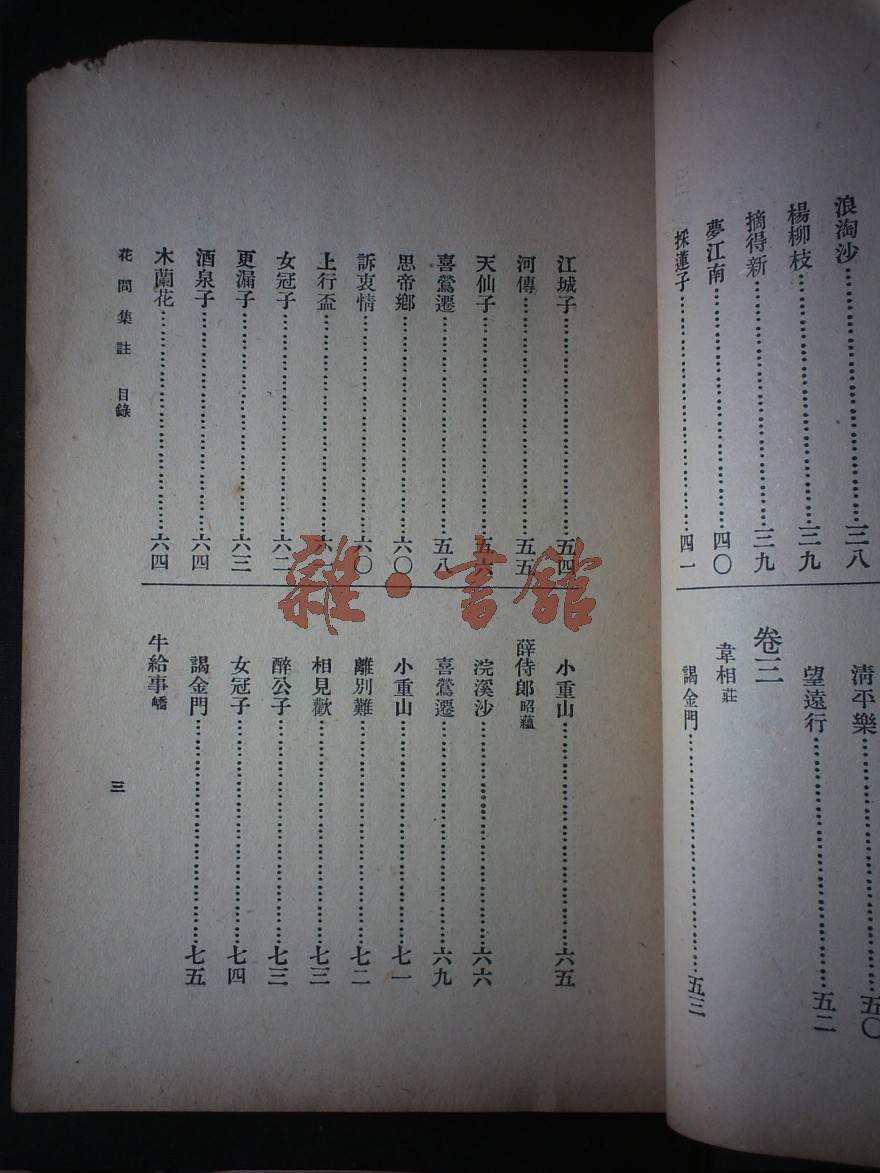 浪淘沙……三八
楊柳枝……三九
摘得新……三九
夢江南……四〇
採蓮子……四一
清平樂……五〇
望遠行……五二
卷三
韋相莊
謁金門……五三
江城子……五四
河傳……五五
天仙子……五六
喜鶯遷……五八
思帝鄉……六〇
訴衷情……六〇
上行盃……六
女冠子……六二
更漏子……六三
酒泉子……六四
木蘭花……六四
小重山……六五
薛侍郎昭蘊
浣溪沙……六六
喜鶯遷……六九
小重山……七一
離別難……七二
相見歡……七三
醉公子……七三
女冠子……七四
謁金門……七五
牛給事嶠
花間集註 目錄
三
雜·書館